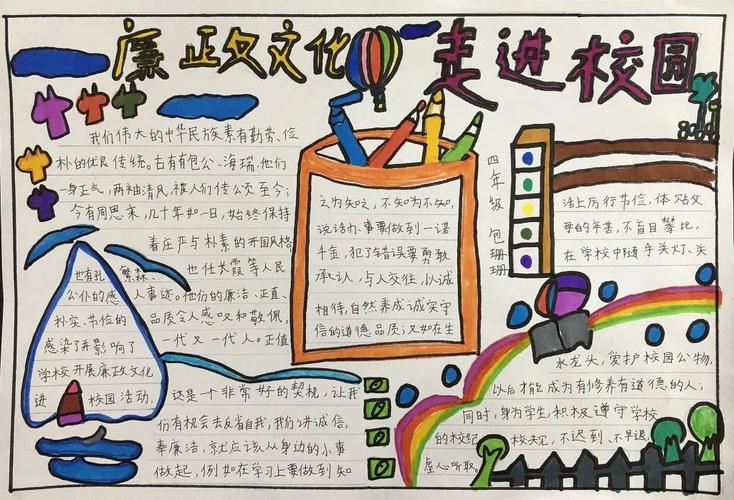 廉政文化 走进校园
我们伟大的中华民族素有勤劳、俭
朴的优良传统。古有有包公、海瑞,他们
一身正气,两袖清风,被人们传公交至今;
今有周恩来,几十年如一日,始终保持
着庄严与朴素的开国风格
也有孔 繁森、 也仕长霞等人民
公仆的感 人事迹。他们的廉洁、正直、
朴实、节俭的 品质令人感叹和敬佩,
感染了并影响了 一代又一代人。正值
学校开展廉政文化
进 校园活动, 这是一个非常好的契机,让我
们有机会去反省自我,我们讲诚信,
奉廉洁,就应该从身边的小事
做起,例如在学习上要做到知
之为知之,不知为不知,
说话办事要做到一诺
千金,犯了错误要勇敢
承认,与人交往,以诚
相待,自然养成诚实守
信的道德品质;又如在生
四年级 包珊珊
活上厉行节俭,体贴父
母的辛苦,不盲目攀比,
在学校中随手关灯、关
水龙头,爱护校园公物,
以后才能成为有修养有道德的人;
同时,身为学生,积极遵守学校
的校纪 校规,不迟到、不早退,
虚心听取。